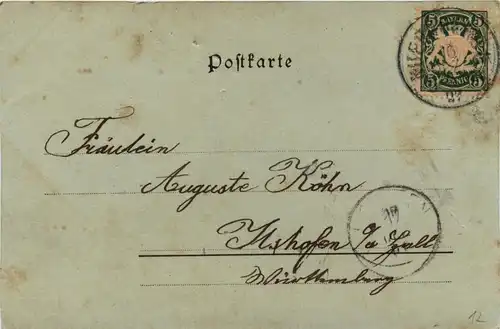 Postkarte
5 BAYERN 5
5 PFENNIG 5
Fräulein
Auguste Köhn
Ilshofen a/Hall
Württemberg
12